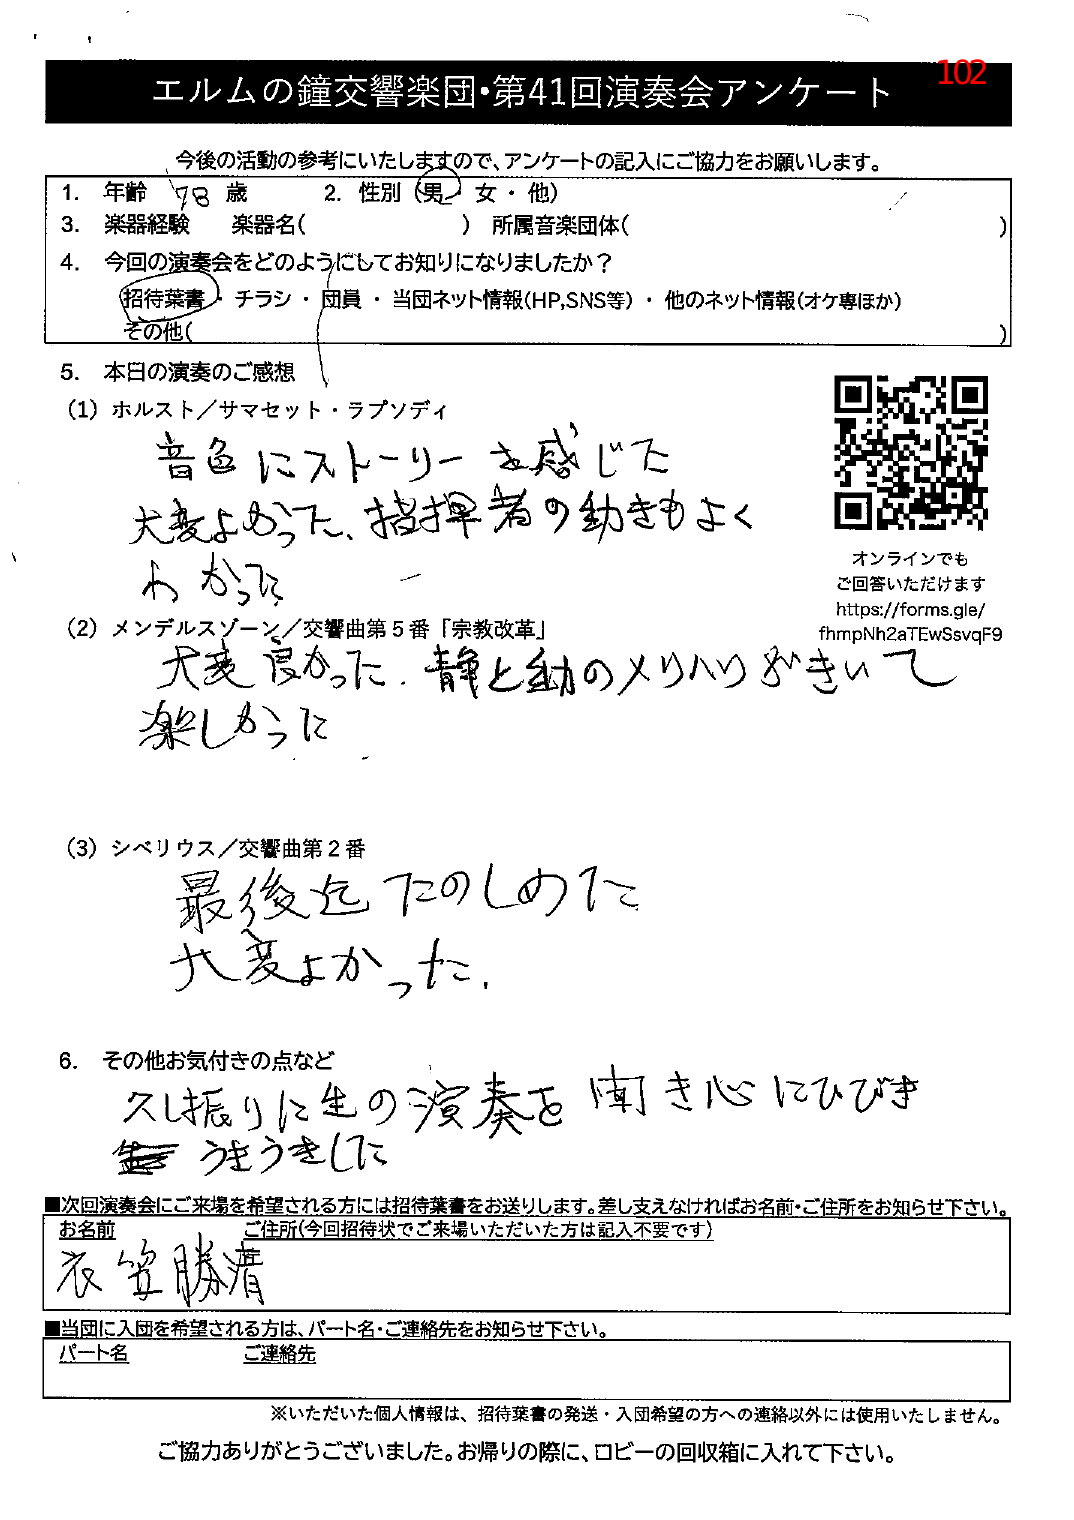 102
エルムの鐘交響楽団・第41回演奏会アンケート
今後の活動の参考にいたしますので、アンケートの記入にご協力をお願いします。
1. 年齢 78 歳 2. 性別 (男・女・他)
3. 楽器経験 楽器名( ) 所属音楽団体( )
4. 今回の演奏会をどのようにしてお知りになりましたか？
招待葉書・チラシ・団員・当団ネット情報(HP,SNS等)・他のネット情報(オケ専ほか)
その他( )
5. 本日の演奏のご感想
(1) ホルスト／サマセット・ラプソディ
音色にストーリーを感じた
大変よかった、指揮者の動きもよく
わかった
オンラインでも
ご回答いただけます
https://forms.gle/
fhmpNh2aTEwSsvqF9
(2) メンデルスゾーン／交響曲第５番「宗教改革」
大変良かった．静と動のメリハリがきいて
楽しかった
(3) シベリウス／交響曲第２番
最後迄たのしめた
大変よかった．
6. その他お気付きの点など
久し振りに生の演奏を聞き心にひびき
うきうきした
■次回演奏会にご来場を希望される方には招待葉書をお送りします。差し支えなければお名前・ご住所をお知らせ下さい。
お名前 ご住所(今回招待状でご来場いただいた方は記入不要です)
衣笠勝清
■当団に入団を希望される方は、パート名・ご連絡先をお知らせ下さい。
パート名 ご連絡先
※いただいた個人情報は、招待葉書の発送・入団希望の方への連絡以外には使用いたしません。
ご協力ありがとうございました。お帰りの際に、ロビーの回収箱に入れて下さい。